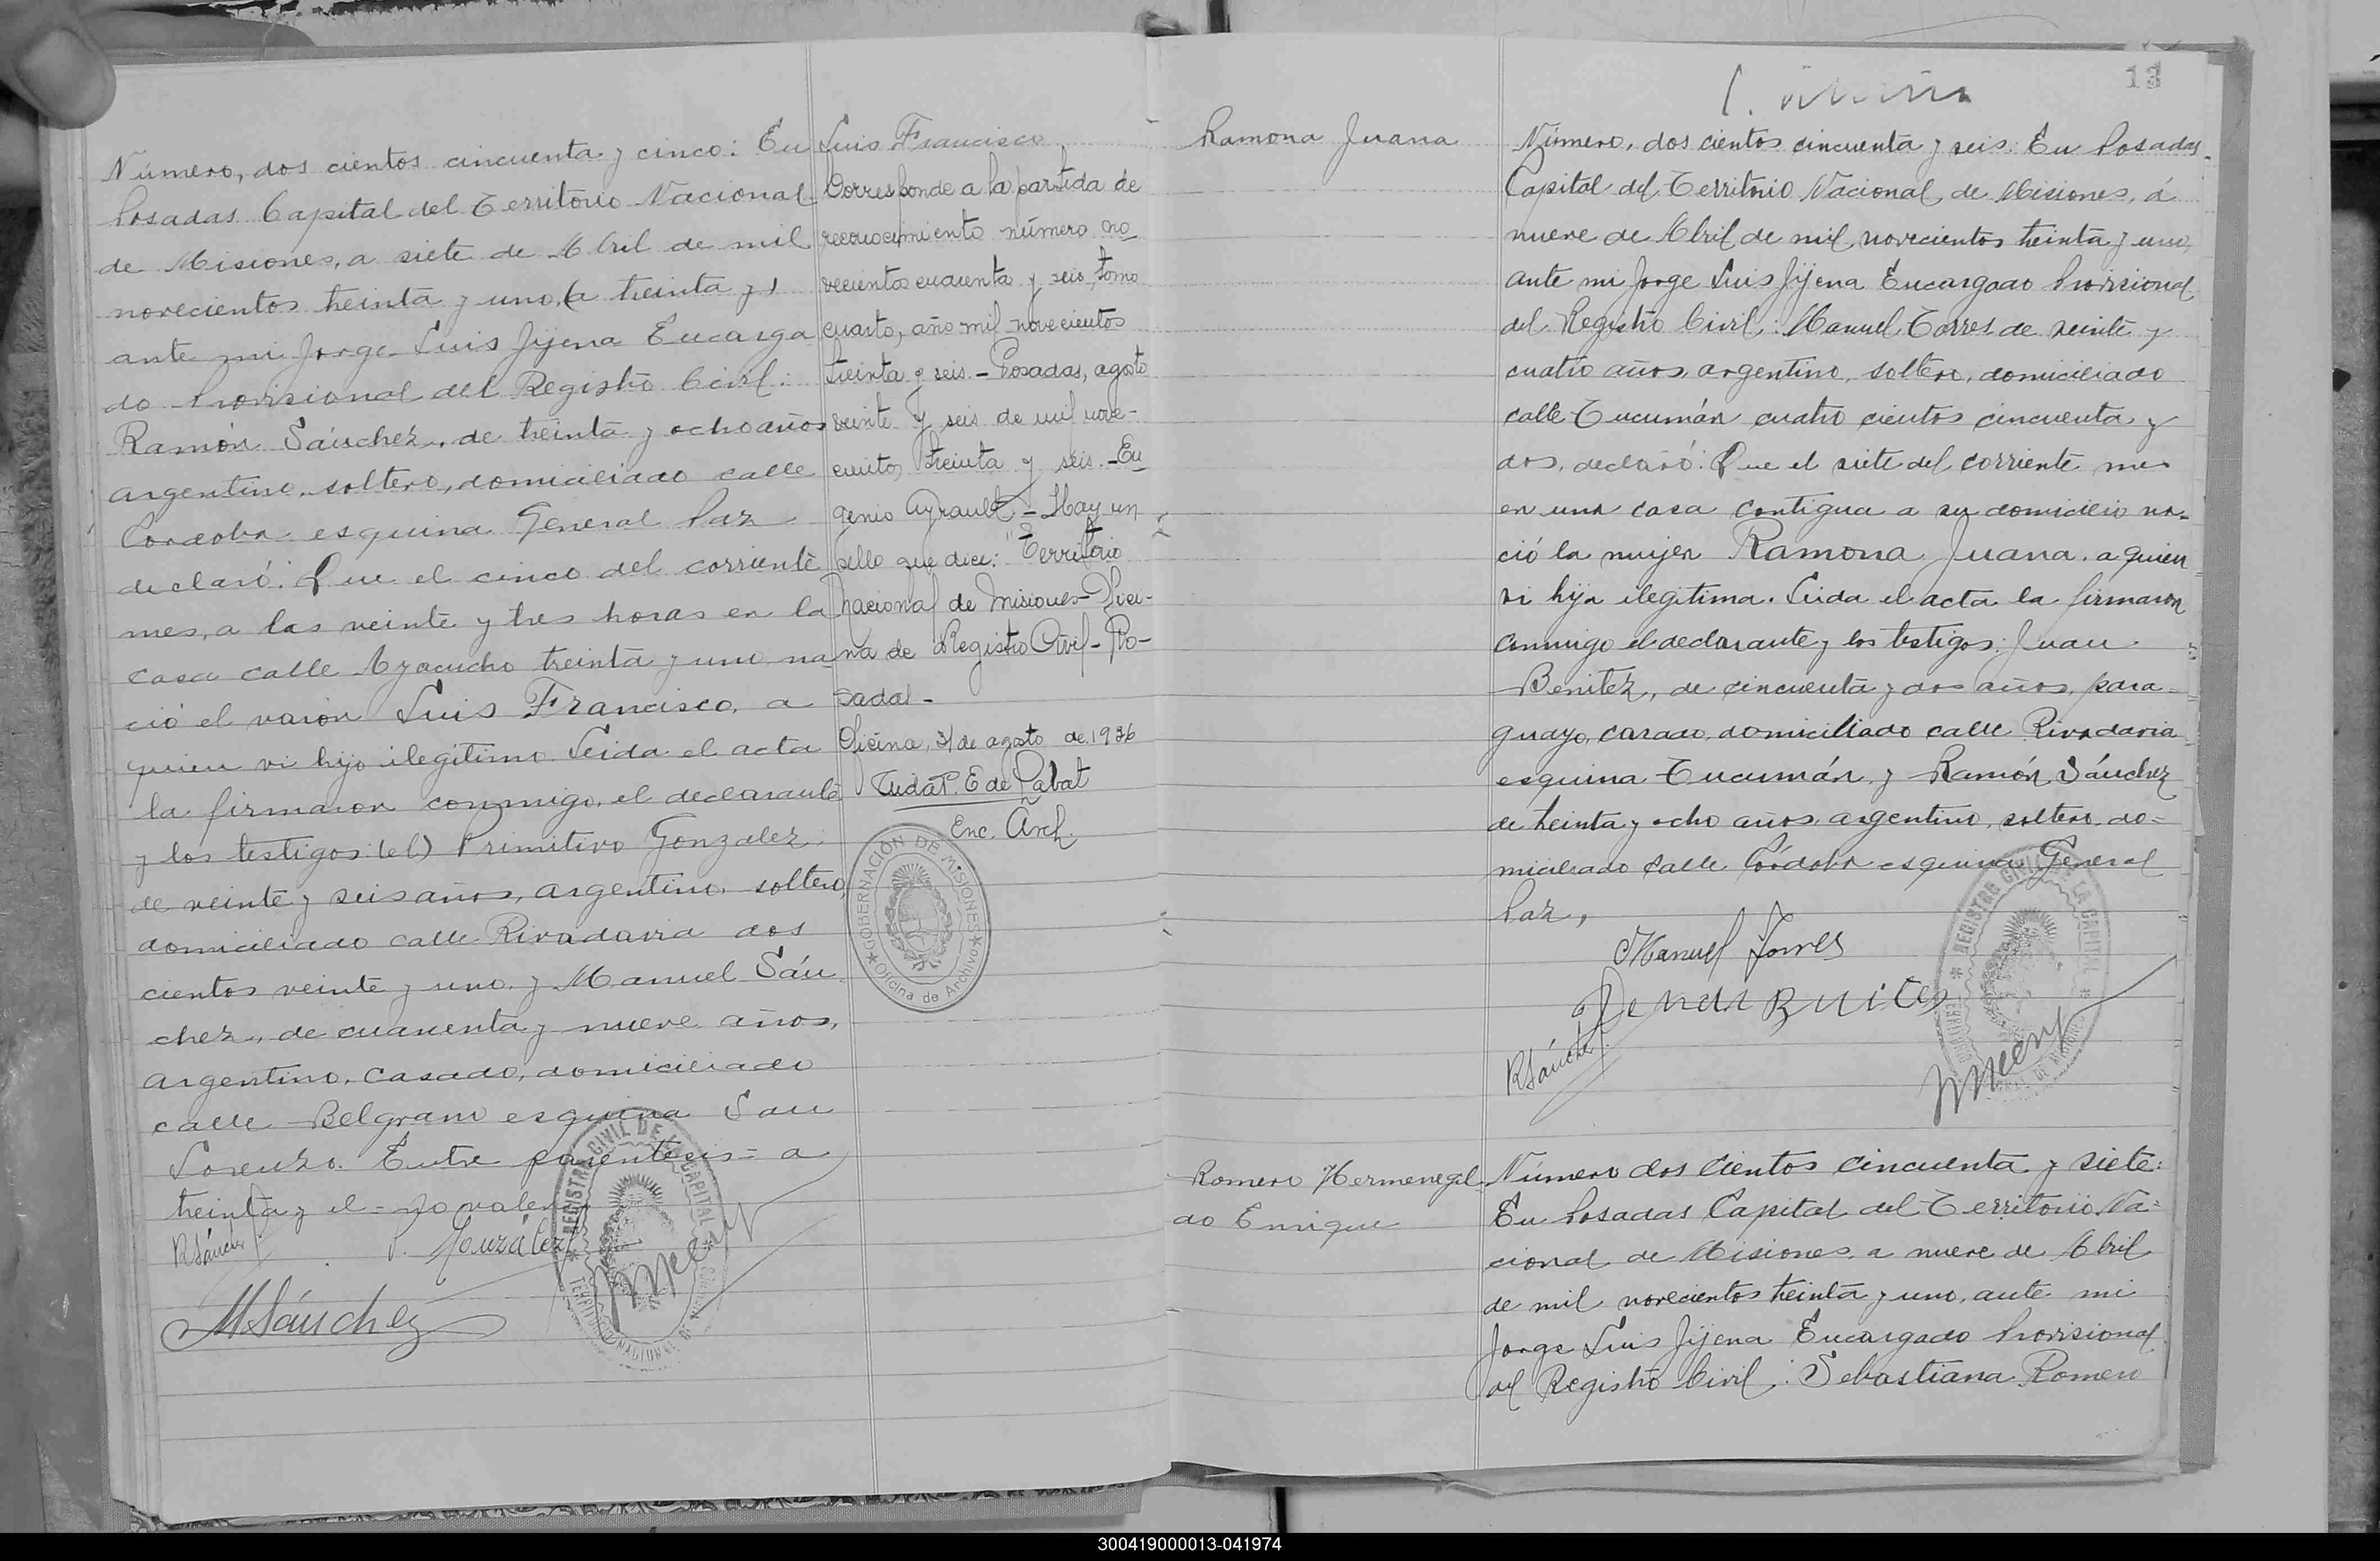 Número, dos cientos cincuenta y cinco: En
Posadas Capital del Territorio Nacional
de Misiones, a siete de Abril de mil
novecientos treinta y uno, (a treinta y)
ante mi Jorge Luis Jijena Encarga
do Provisional del Registro Civil:
Ramón Sánchez, de treinta y ocho años
argentino, soltero, domiciliado calle
Córdoba esquina General Paz
declaró: Que el cinco del corriente
mes, a las veinte y tres horas en la
casa calle Ayacucho treinta y uno na
ció el varón Luis Francisco, a
quien vi hijo ilegítimo. Leida el acta
la firmaron conmigo, el declarante
y los testigos: (el) Primitivo Gonzalez
de veinte y seis años, argentino, soltero,
domiciliado calle Rivadavia dos
cientos veinte y uno y Manuel Sán
chez, de cuarenta y nueve años,
argentino, casado, domiciliado
calle Belgrano esquina San
Lorenzo. Entre paréntesis = a
treinta y el = no valen
RSánchez
P. González
MSánchez
REGISTRO CIVIL DE LA CAPITAL
TERRITORIO NACIONAL DE MISIONES
Luis Francisco
Corresponde a la partida de
reconocimiento número no-
vecientos cuarenta y seis, tomo
cuarto, año mil novecientos
treinta y seis. - Posadas, agosto
veinte y seis de mil nove-
cientos treinta y seis. - Eu
genio Ayrault - Hay un
sello que dice: "Territorio
Nacional de Misiones - Ofici-
na de Registro Civil - Po-
sadas -
Oficina, 31 de agosto de 1936
E de Labat
Enc. Arch.
GOBERNACIÓN DE MISIONES
Oficina de Archivo
13
Ramona Juana
Número, dos cientos cincuenta y seis: En Posadas
Capital del Territorio Nacional de Misiones, á
nueve de Abril de mil novecientos treinta y uno,
ante mi Jorge Luis Jijena Encargado Provisional
del Registro Civil: Manuel Torres de veinte y
cuatro años, argentino, soltero, domiciliado
calle Tucumán cuatro cientos cincuenta y
dos, declaró: Que el siete del corriente mes
en una casa contigua a su domicilio na-
ció la mujer Ramona Juana, a quien
vi hija ilegítima. Leida el acta la firmaron
conmigo el declarante y los testigos: Juan
Benitez, de cincuenta y dos años, para-
guayo, casado, domiciliado calle Rivadavia
esquina Tucumán y Ramón Sánchez
de treinta y ocho años, argentino, soltero, do=
miciliado calle Córdoba esquina General
Paz,
Manuel Torres
RSánchez
REGISTRO CIVIL DE LA CAPITAL
Romero Hermenegil-
do Enrique
Número dos cientos cincuenta y siete:
En Posadas Capital del Territorio Na=
cional de Misiones a nueve de Abril
de mil novecientos treinta y uno, ante mi
Jorge Luis Jijena Encargado Provisional
del Registro Civil: Sebastiana Romero
300419000013-041974